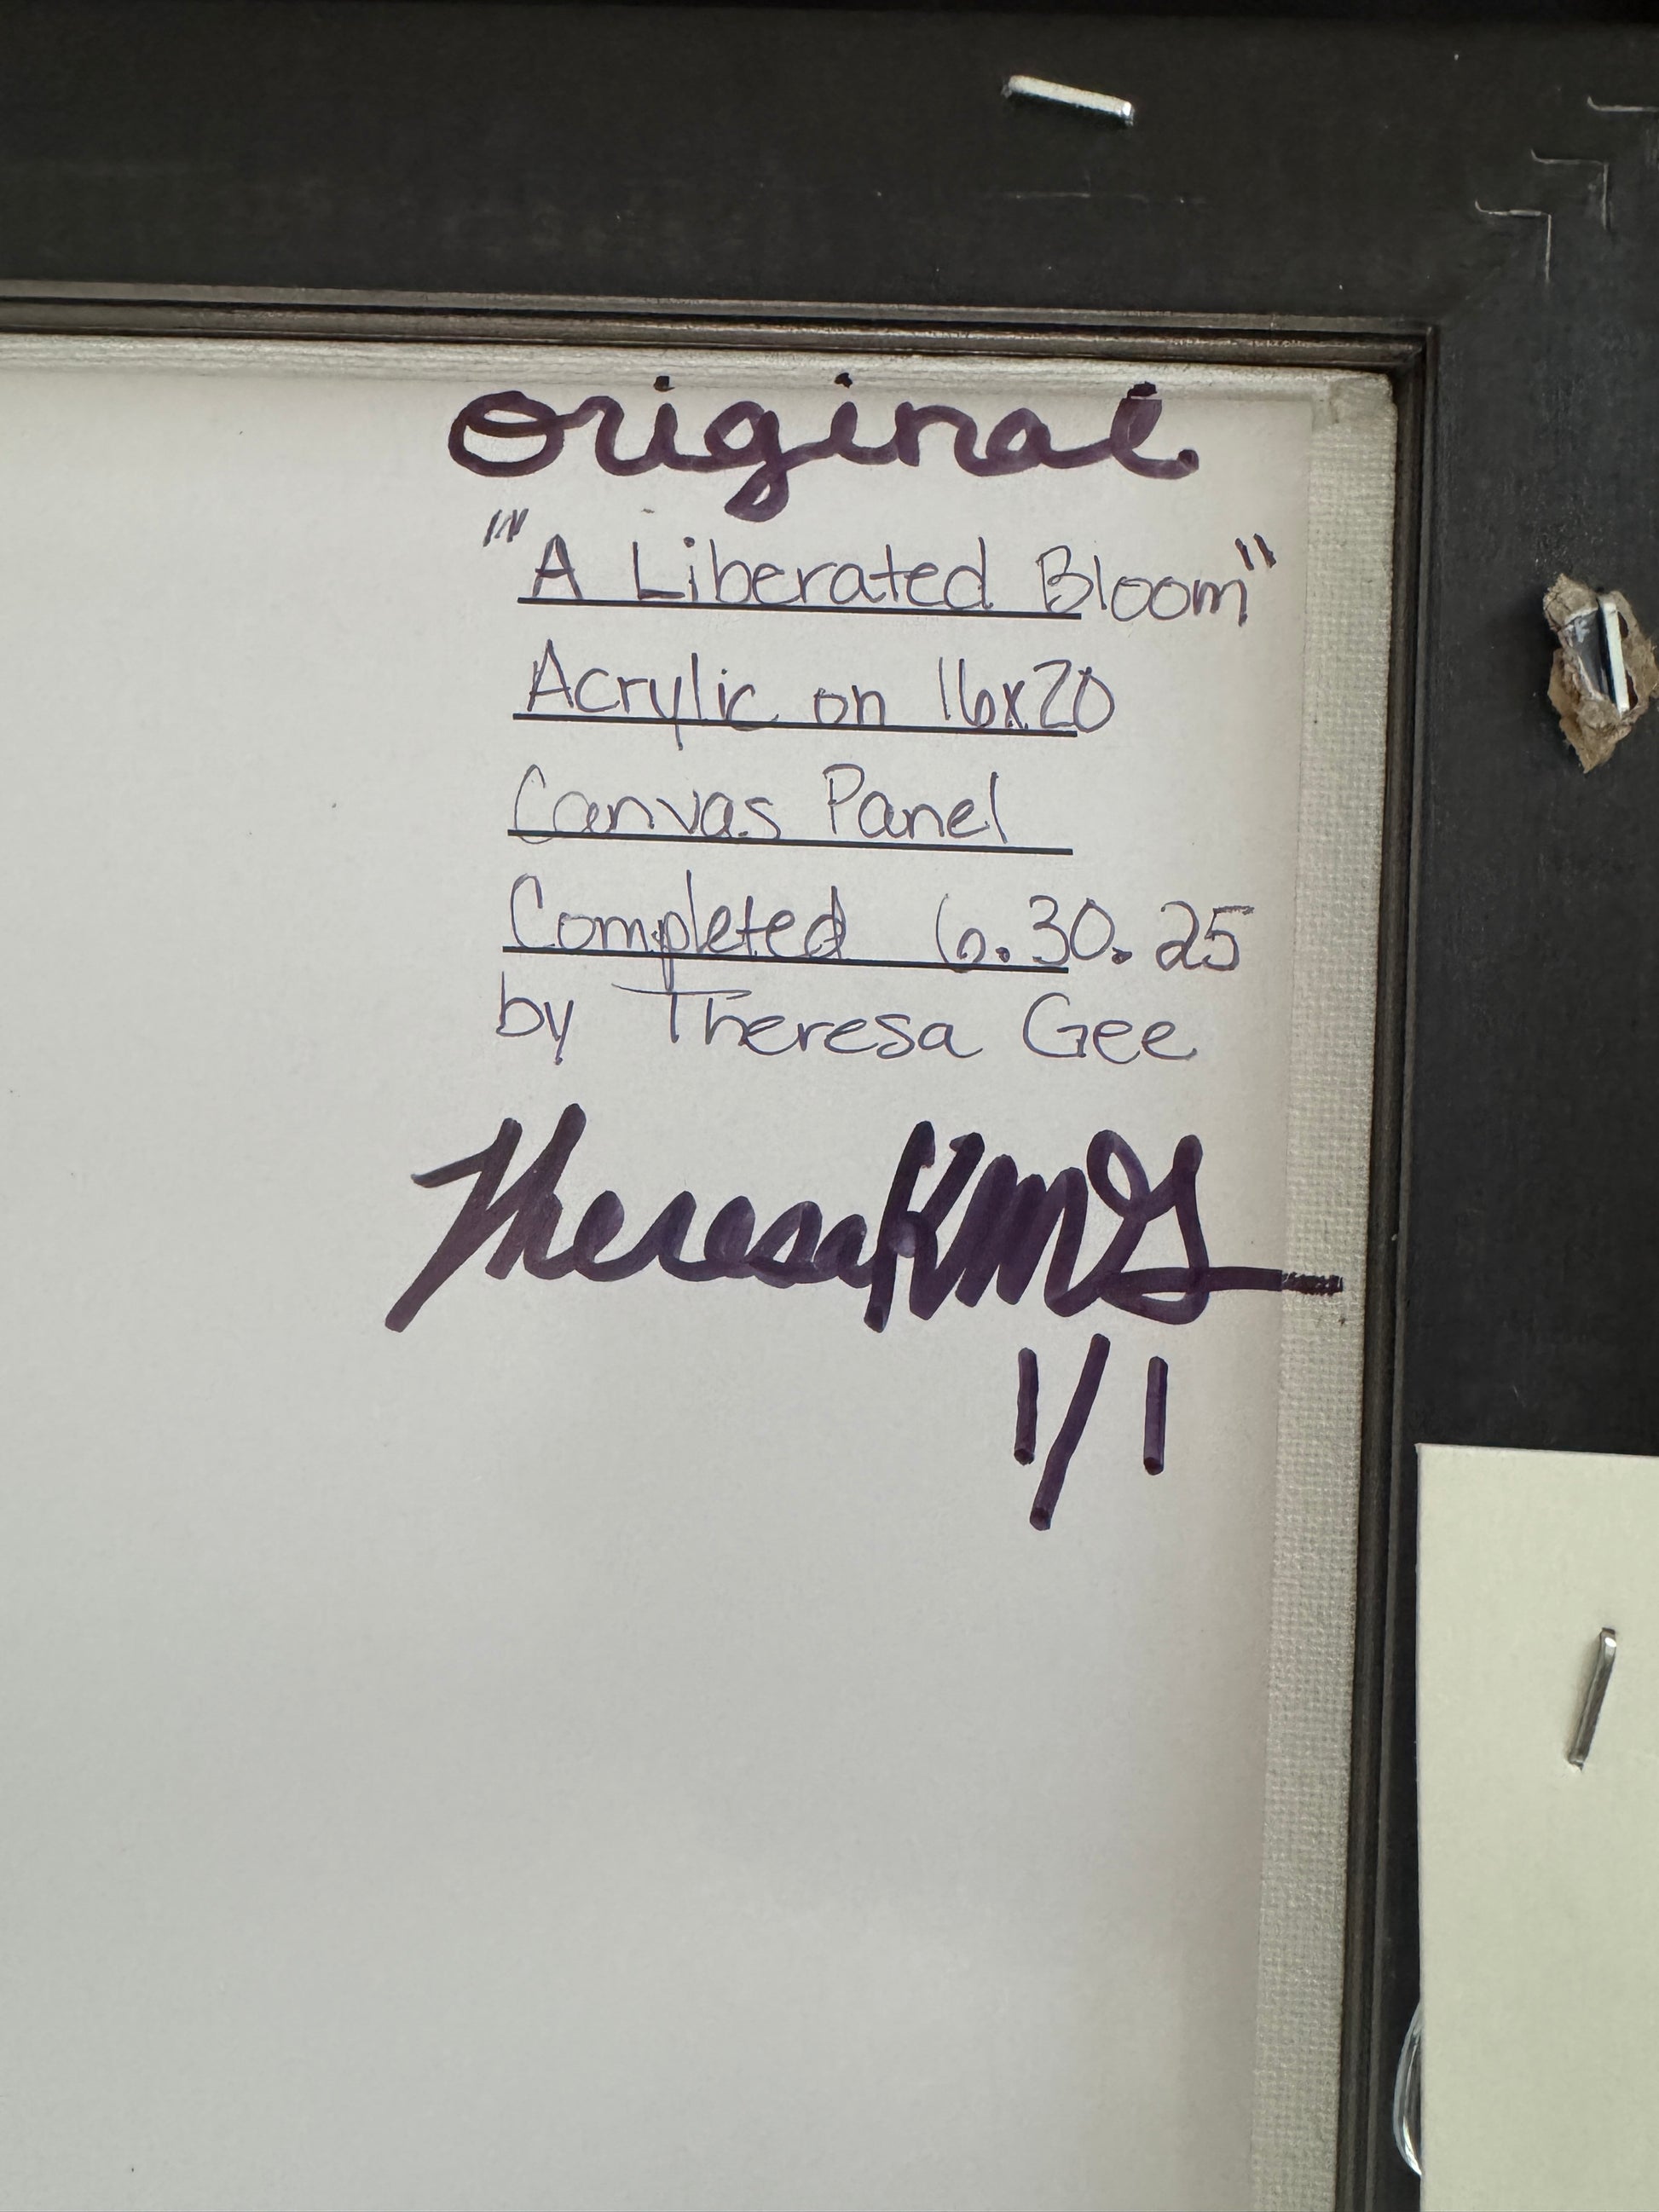 Original
"A Liberated Bloom"
Acrylic on 16x20
Canvas Panel
Completed 6.30.25
by Theresa Gee
Theresa KMG
1/1